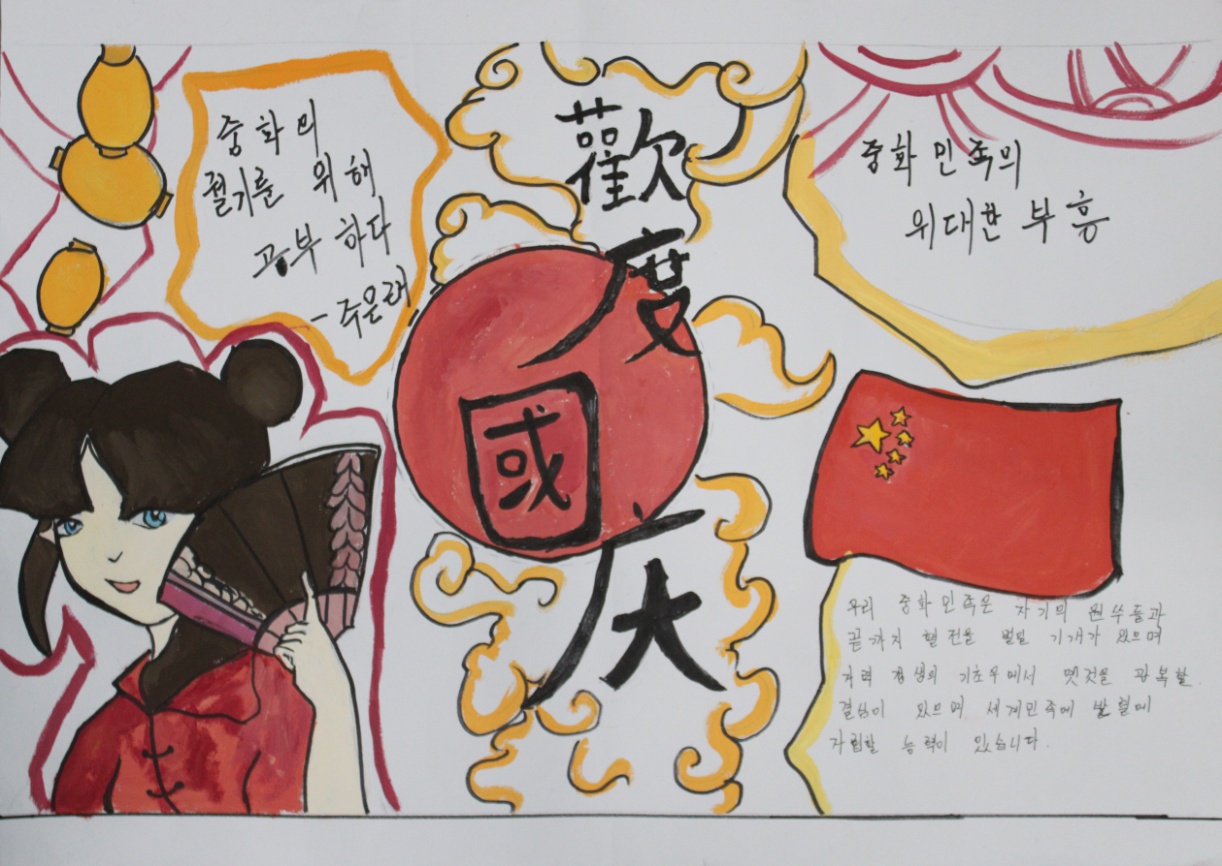 중화의
궐기를 위해
공부 하다
- 주은래
歡
度
國
庆
중화 민족의
위대한 부흥
우리 중화민족은 자기의 원쑤들과
끝까지 혈전을 벌릴 기개가 있으며
자력 갱생의 기초우에서 옛것을 광복할
결심이 있으며 세계민족에 발렬에
자립할 능력이 있습니다.